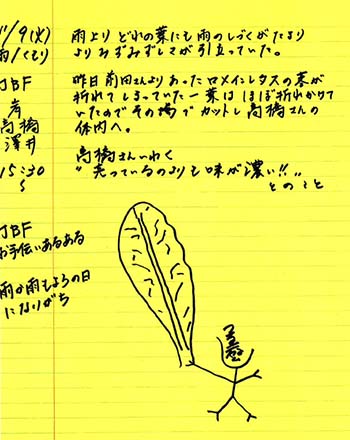 11/9(火)
雨/くもり
JBF
岸
高橋
澤井
15:30
〜
雨より どれの葉にも雨のしづくがたまり
よりみずみずしさが引立っていた。
昨日前田さんより あった ロメインレタスの葉が
折れてしまっていた 一葉は ほぼ折れかけて
いたので その場でカットし 高橋さんの
体内へ。
高橋さんいわく
"売っているのよりも味が濃い!!"
とのこと
JBF
お手伝いあるある
雨か雨もようの日
になりがち